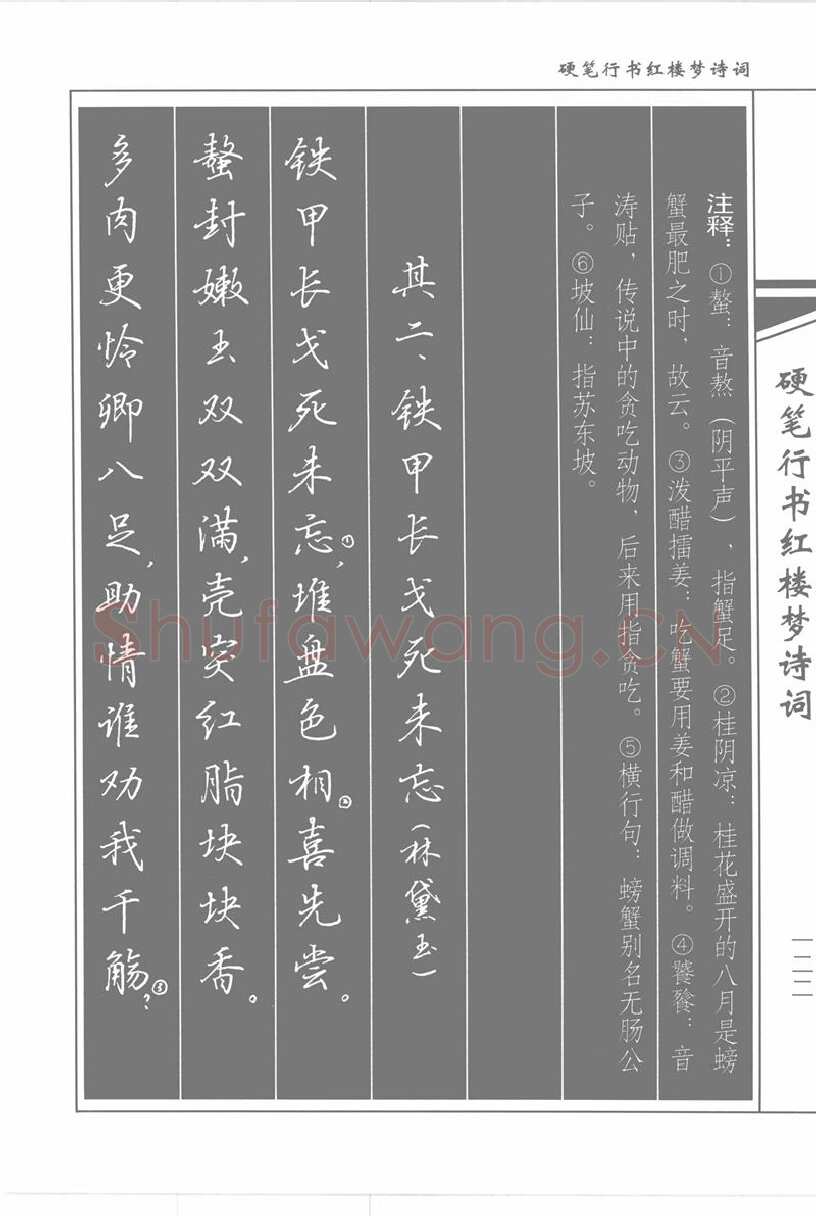 硬笔行书红楼梦诗词
注释：①螯：音熬（阴平声），指蟹足。②桂阴凉：桂花盛开的八月是螃
蟹最肥之时，故云。③泼醋擂姜：吃蟹要用姜和醋做调料。④饕餮：音
涛贴，传说中的贪吃动物，后来用指贪吃。⑤横行句：螃蟹别名无肠公
子。⑥坡仙：指苏东坡。
其二、铁甲长戈死未忘（林黛玉）
铁甲长戈死未忘①，堆盘色相②。喜先尝。
螯封嫩玉双双满，壳突红脂块块香。
多肉更怜卿八足，助情谁劝我千觞③？
硬笔行书红楼梦诗词
一二二
Shufawang.CN